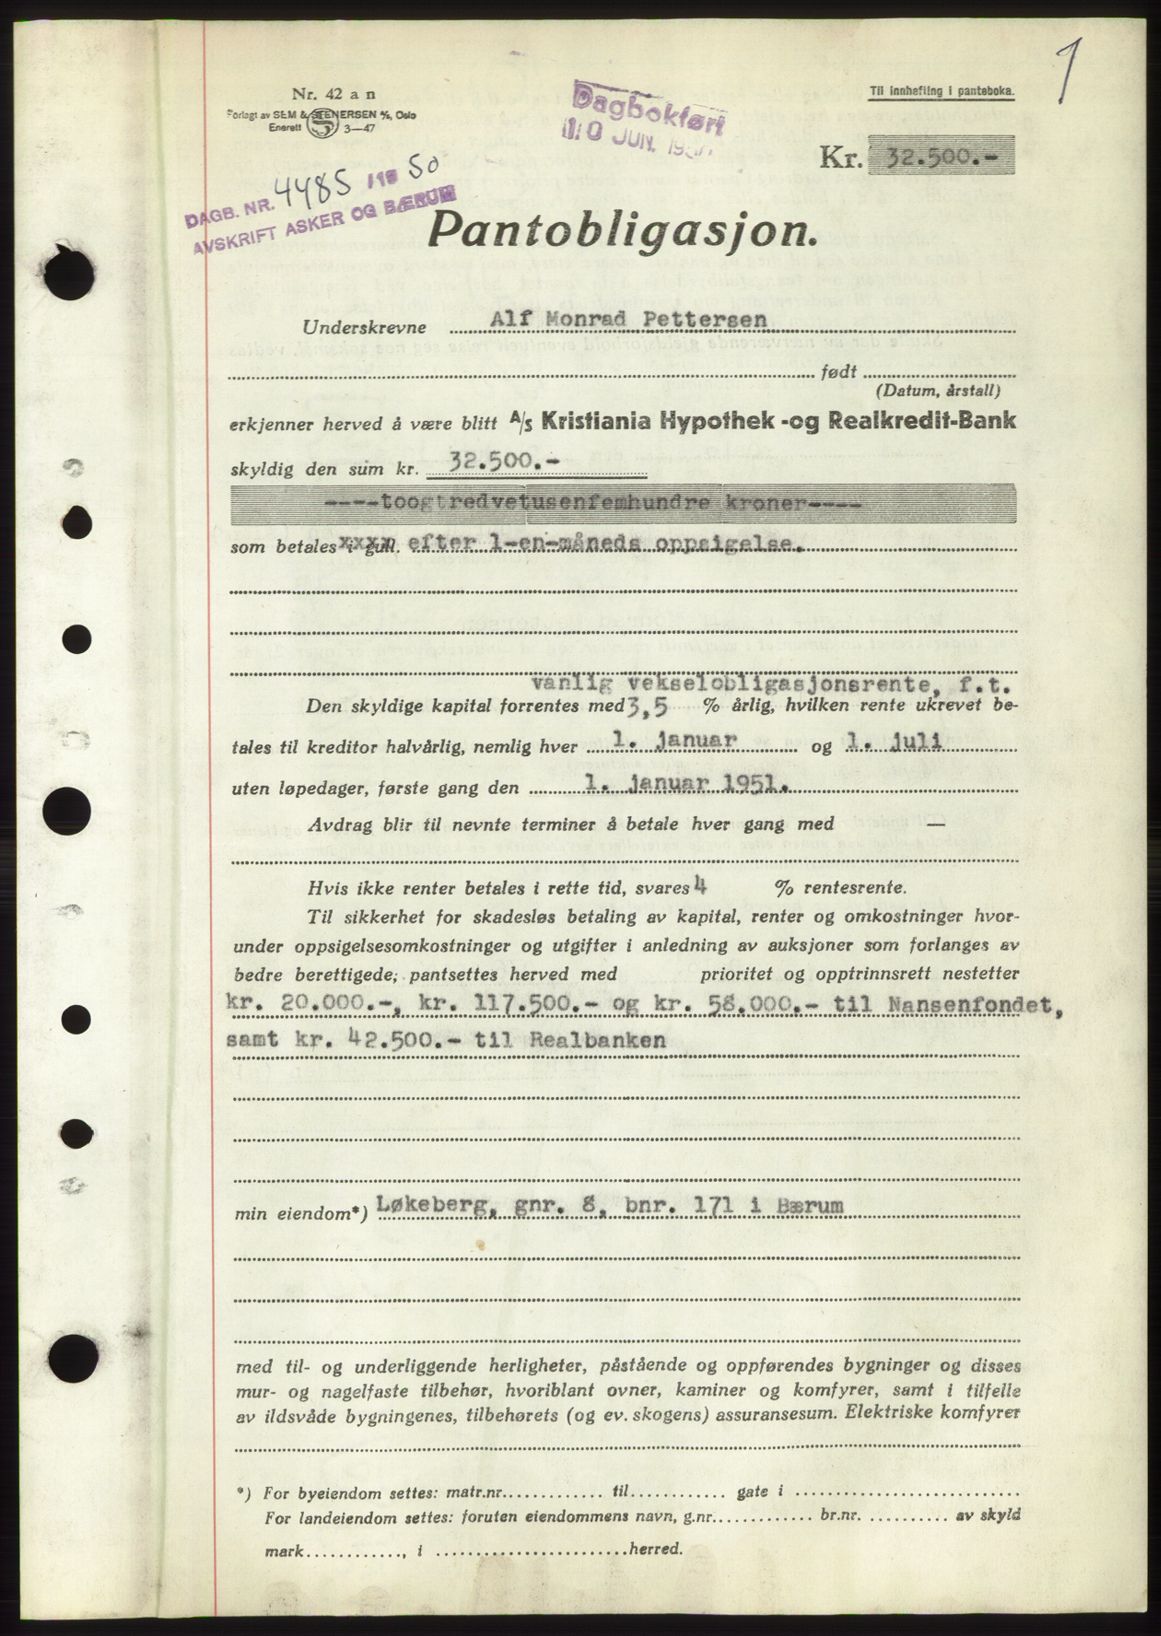 1
Nr. 42 a n
Forlagt av SEM & STENERSEN A/S, Oslo
Enerett 3—47
Dagbokført
10 JUN. 19
Til innhefting i panteboka.
Kr. 32.500.-
DAGB. NR. 4485 /19 50
AVSKRIFT ASKER OG BÆRUM
Pantobligasjon.
Underskrevne Alf Monrad Pettersen
født
(Datum, årstall)
erkjenner herved å være blitt A/s Kristiania Hypothek -og Realkredit-Bank
skyldig den sum kr. 32.500.-
----toogtredvetusenfemhundre kroner----
som betales i gull. efter 1-en-måneds oppsigelse.
vanlig vekselobligasjonsrente, f.t.
Den skyldige kapital forrentes med 3,5 % årlig, hvilken rente ukrevet be-
tales til kreditor halvårlig, nemlig hver 1. januar og 1. juli
uten løpedager, første gang den 1. januar 1951.
Avdrag blir til nevnte terminer å betale hver gang med —
Hvis ikke renter betales i rette tid, svares 4 % rentesrente.
Til sikkerhet for skadesløs betaling av kapital, renter og omkostninger hvor-
under oppsigelsesomkostninger og utgifter i anledning av auksjoner som forlanges av
bedre berettigede, pantsettes herved med prioritet og opptrinnsrett nestetter
kr. 20.000.-, kr. 117.500.- og kr. 58.000.- til Nansenfondet,
samt kr. 42.500.- til Realbanken
min eiendom*) Løkeberg, gnr. 8, bnr. 171 i Bærum
med til- og underliggende herligheter, påstående og oppførendes bygninger og disses
mur- og nagelfaste tilbehør, hvoriblant ovner, kaminer og komfyrer, samt i tilfelle
av ildsvåde bygningenes, tilbehørets (og ev. skogens) assuransesum. Elektriske komfyrer
*) For byeiendom settes: matr.nr. til gate i
For landeiendom settes: foruten eiendommens navn, g.nr. br.nr. av skyld
mark , i herred.